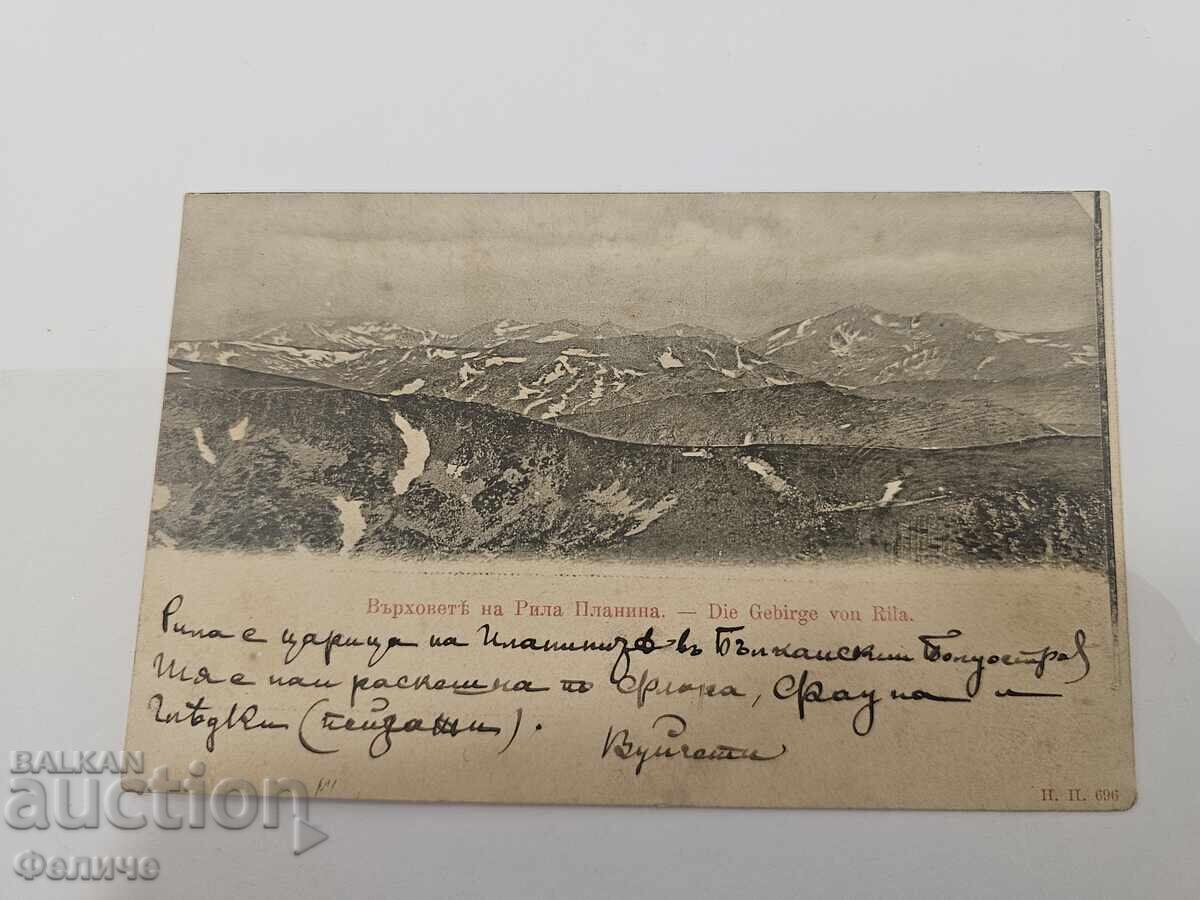 Върховетѣ на Рила Планина. — Die Gebirge von Rila.
Рила е царица на Планинитѣ въ Бълкански Полуостров
Тя е най раскошна по флора, фауна и
Глѣдки (пейзажи).
Вуйчети
И. П. 696
BALKAN
auction
Феличе